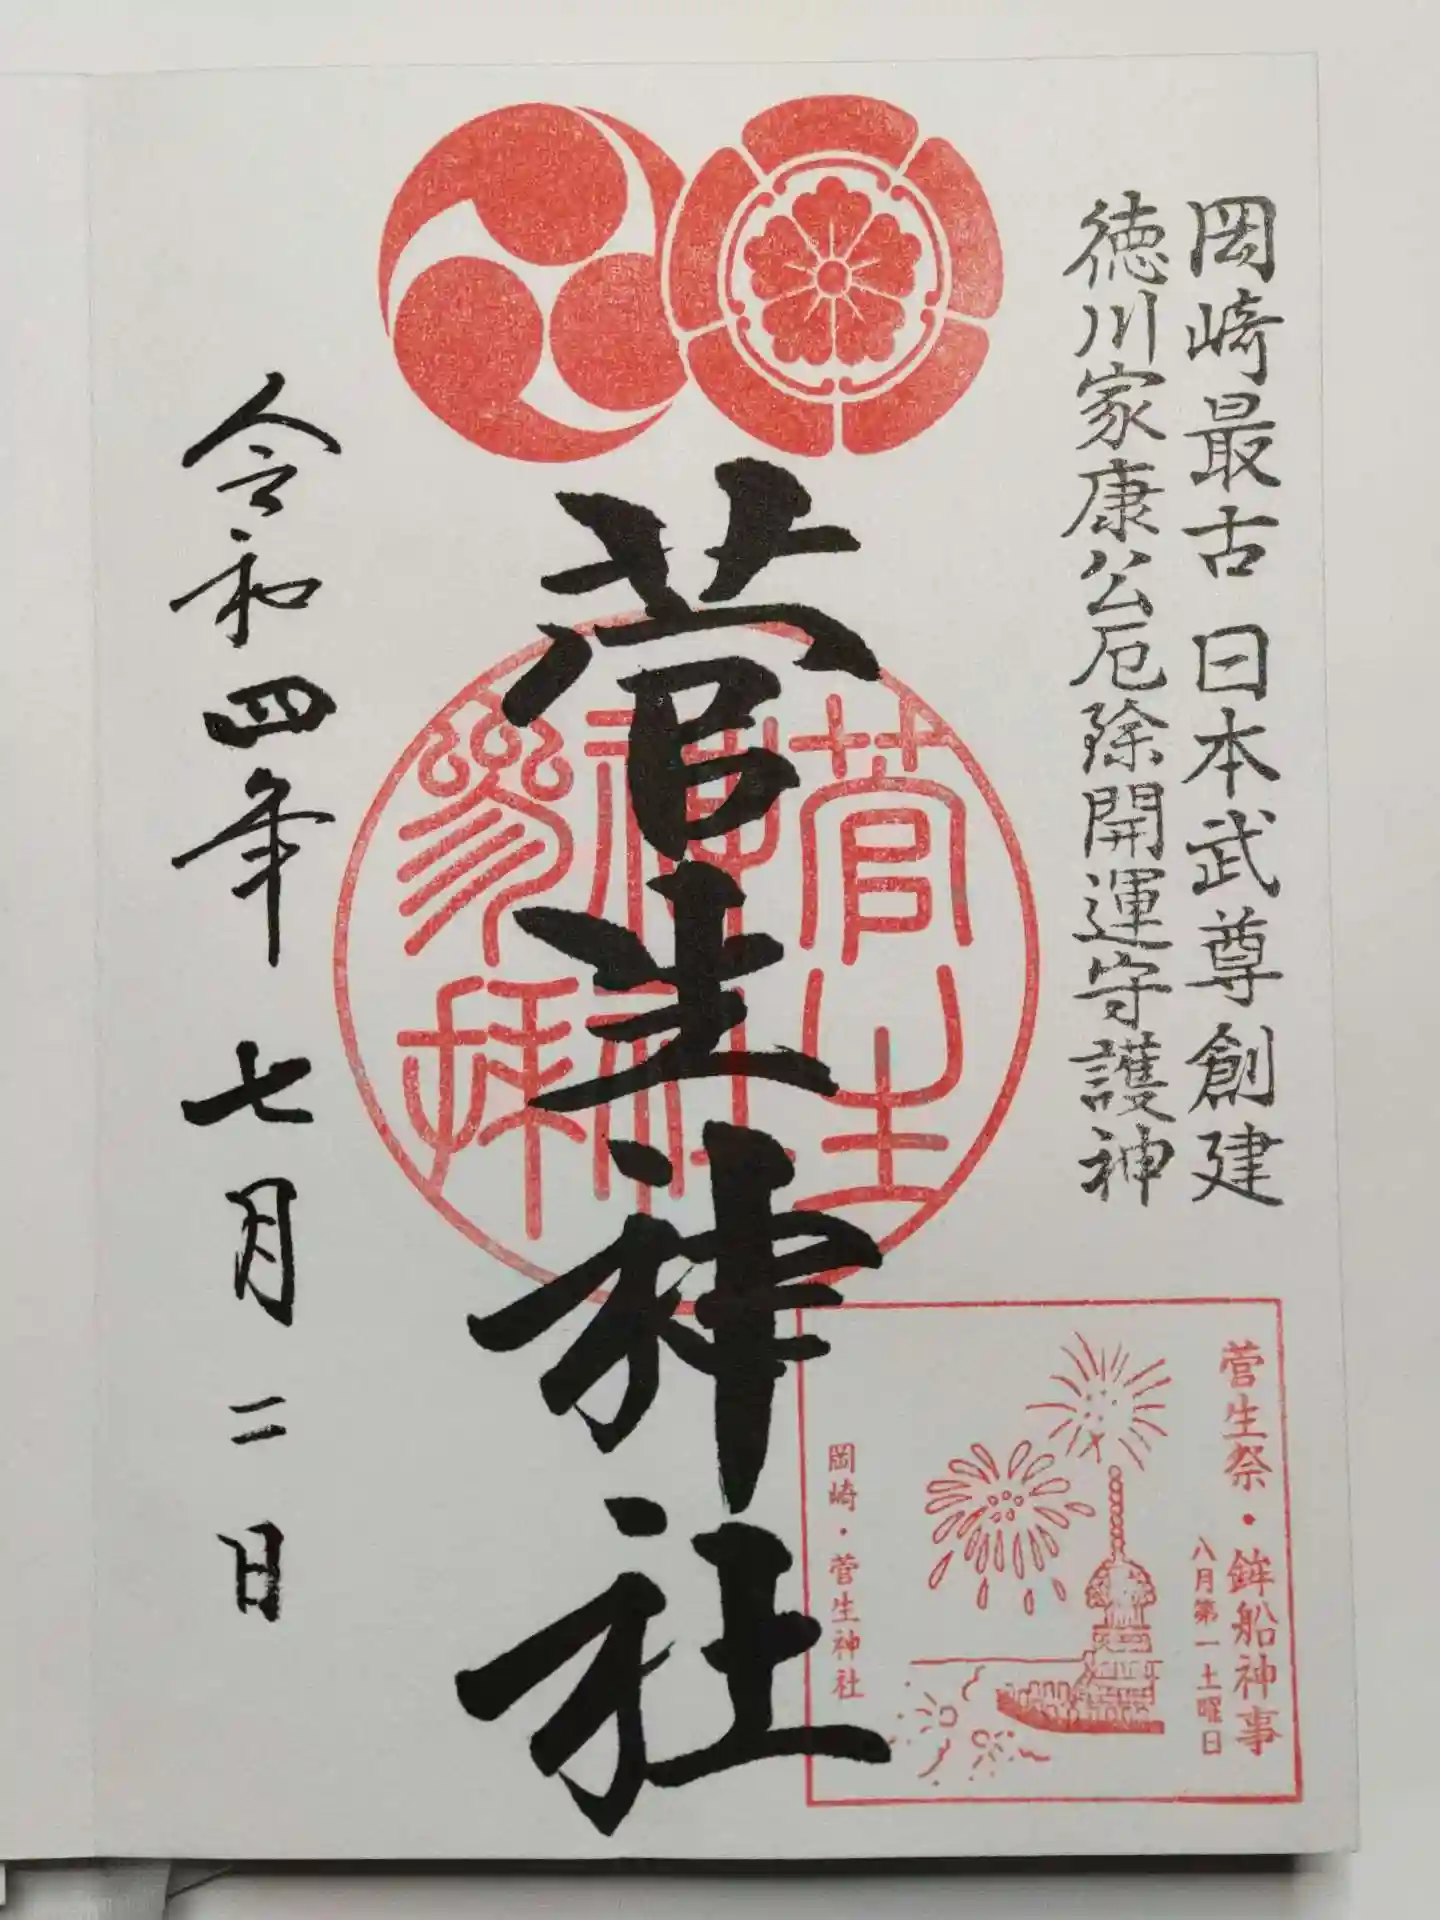 岡崎最古 日本武尊創建
徳川家康公厄除開運守護神
菅生神社
菅生
神社
参拝
令和四年 七月二日
菅生祭・鉾船神事
八月第一土曜日
岡崎・菅生神社